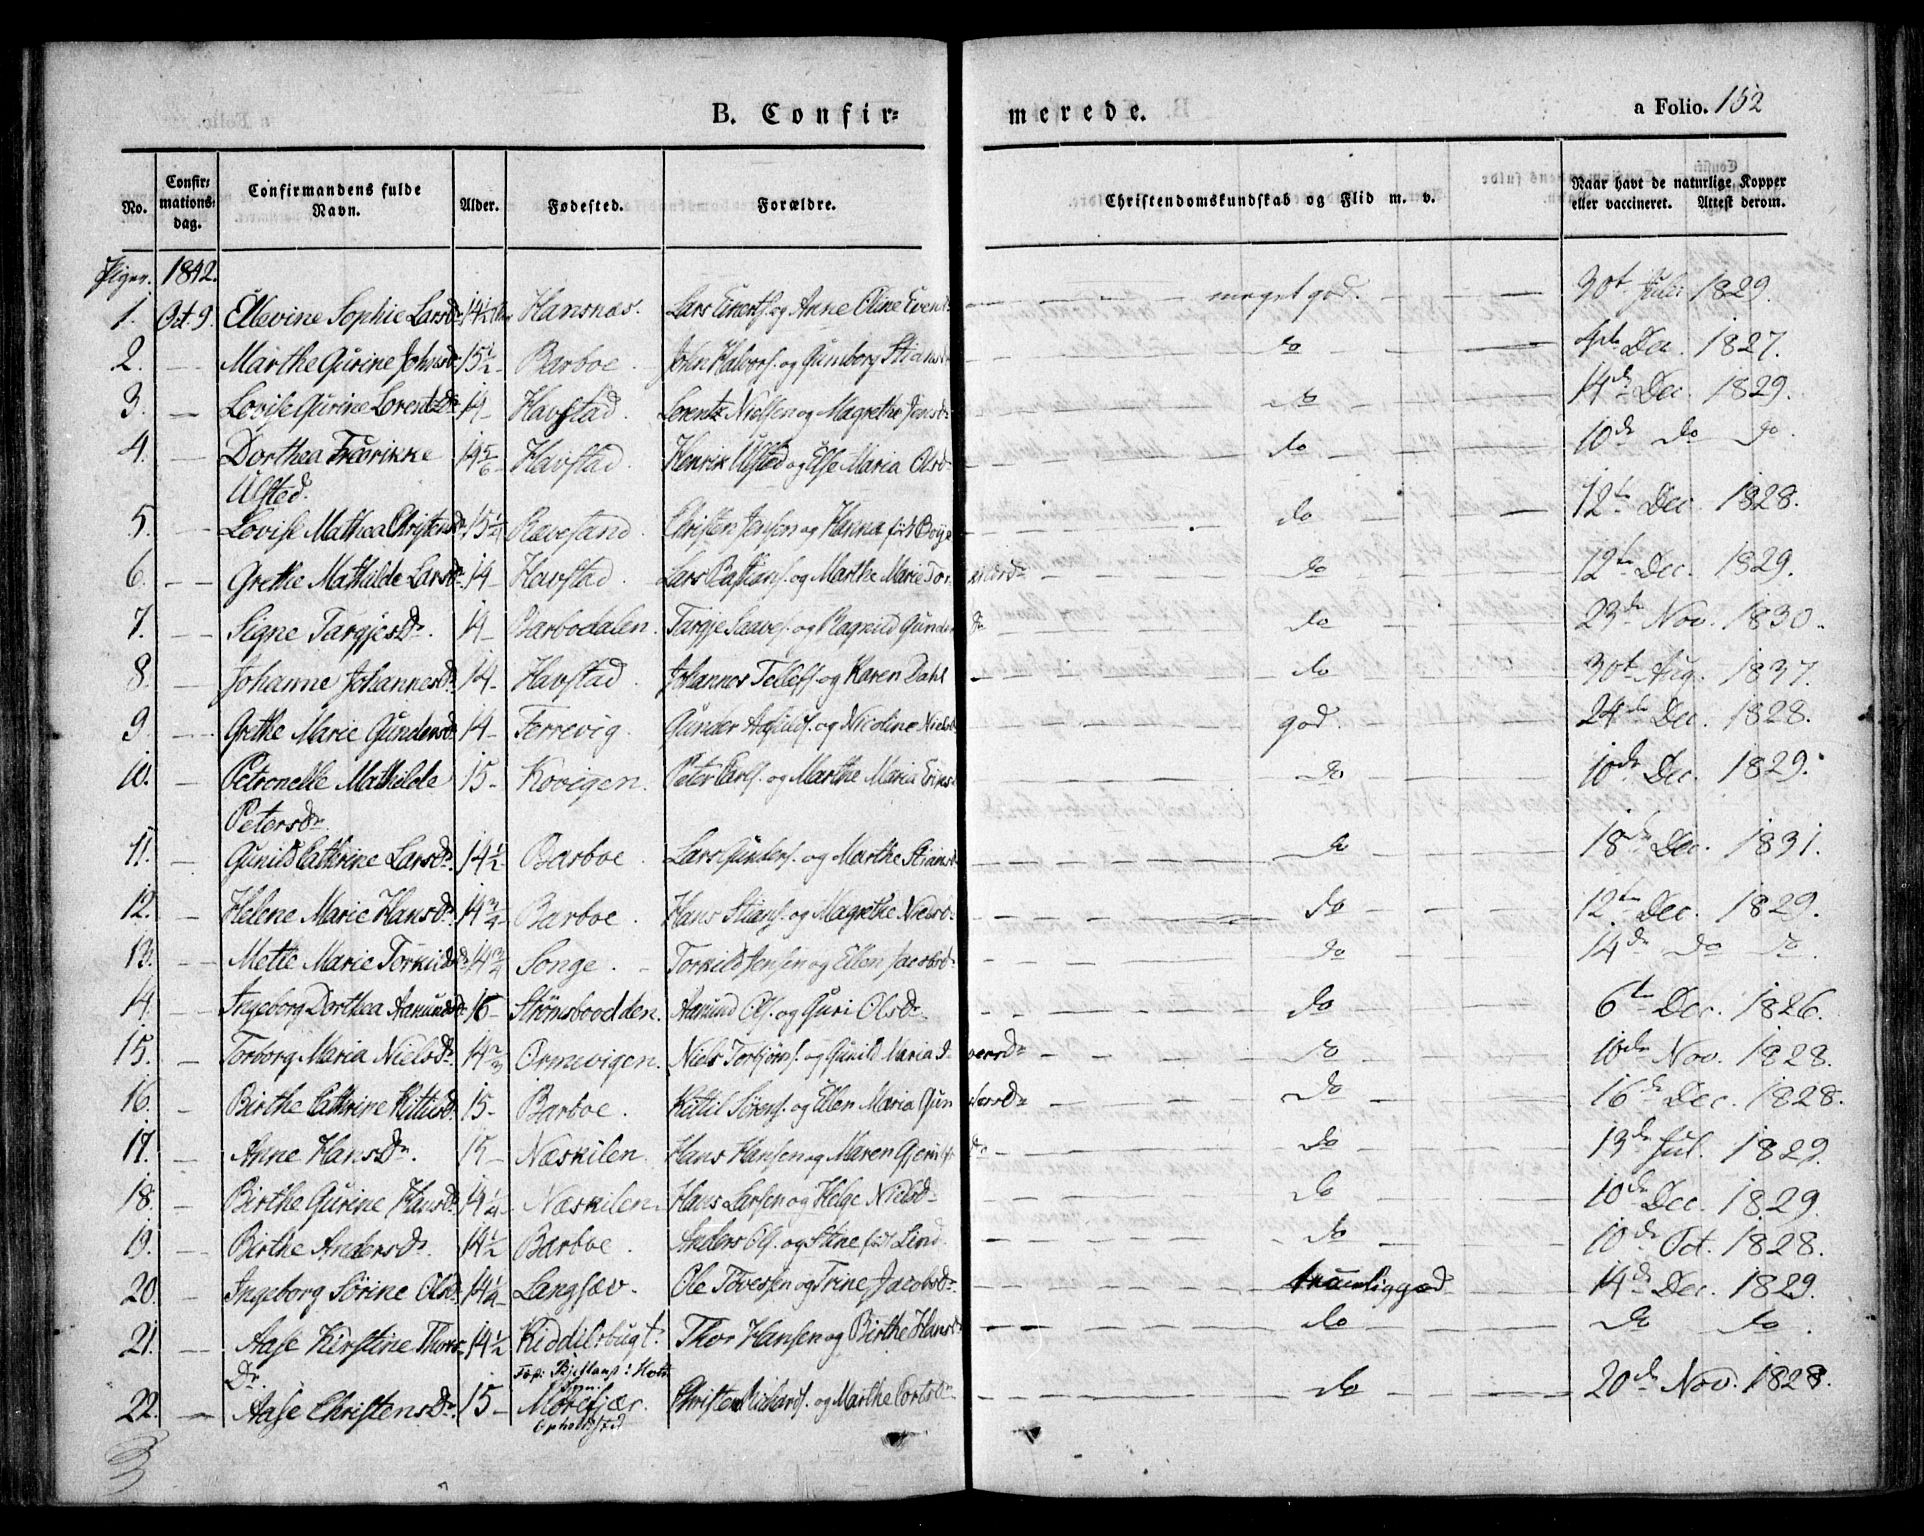 B. Confir= merede. a Folio. 152
No. Confir= mations= dag. Confirmandens fulde Navn. Alder. Fødested. Forældre. Christendomskundskab og Flid m. v. Naar havt de naturlige Kopper eller vaccineret. Attest derom.
Piger. 1842.
1. Oct. 9. Ellevine Sophie Larsdr 14 1/2 Hansnæs. Lars Evertsf. og Anne Oline Evend meget god. 30t Juli 1829.
2. — Marthe Gurine Johnsdr 15 1/2 Barboe. John Halvors. og Gunborg Stiansd do 4de Dec. 1827.
3. — Lovise Gurine Lorentzdr 14 Havstad. Lorentz Nielsen og Magrethe Jensdr do 14de Dec. 1829.
4. — Dorthea Fredrikke 14 5/6 Havstad. Henrik Ulsted og Else Maria Olsdr do 10de do do.
Ulsted.
5. — Lovise Mathea Christensdr 15 1/4 Rævesand. Christen Jensen og Hanna født Boye do 12te Dec. 1828.
6. — Grethe Mathilde Larsdr 14 Havstad. Lars Bastians. og Marthe Marie Tor do 12te Dec. 1829.
7. — Signe Targjesdr. 14 Barbodalen. Targje Saaves. og Ragnild Gunder dr do 23de Nov. 1830.
8. — Johanne Johannesdr 14 Havstad. Johannes Tellefs. og Karen Dahl do 30t Aug. 1837.
9. — Grethe Marie Gundersdr 14 Ferrevig. Gunder Aslaks. og Nicoline Nielsd god. 24de Dec. 1828.
10. — Petronelle Mathilde 15 Kovigen. Peter Carls. og Marthe Maria Eriks do 10de Dec. 1829.
Petersdr
11. — Gunild Cathrine Larsdr. 14 1/2 Barboe. Lars Gunders. og Marthe Stiansd do 18de Dec. 1831.
12. — Helene Marie Hansdr 14 3/4 Barboe. Hans Stians. og Magrethe Nielsdr do 12te Dec. 1829.
13. — Mette Marie Torkildsdr 14 3/4 Songe. Torkild Jensen og Ellen Jacobsdr do 14de do do.
14. — Ingeborg Dorthea Aamundsdr 16 Strømsbodden. Aamund Ols. og Guri Olsdr. do 6te Dec. 1826.
15. — Torborg Maria Nielsdr 14 2/3 Ormevigen. Niels Torbjørns. og Gunild Maria versdr do 10de Nov. 1828.
16. — Birthe Cathrine Kittilsdr. 15 Barboe. Kittil Sørens. og Ellen Maria Gun dersdr do 16de Dec. 1828.
17. — Anne Hansdr. 15 Næskilen. Hans Hansen og Maren dr do 13de Jul. 1829.
18. — Birthe Gurine Hansdr 14 1/4 Næskilen. Hans Larsen og Helge Nielsdr do 10de Dec. 1829.
19. — Birthe Andersdr. 14 1/2 Barboe. Anders Ols. og Stine født Lind. do 10de Oct. 1828.
20. — Ingeborg Sørine Olsdr. 14 1/4 Langsæv. Ole Tovesen og Trine Jacobsdr temmelig god 14de Dec. 1829.
21. — Aase Kirstine Thors- 14 1/2 Kiddilsbugt. Thor Hansen og Birthe Hansdr do do do
dr.
22. — Aase Christensdr. 15 Morefjær. Christen Richards. og Marthe do 20de Nov. 1828.
Opholdsted
3